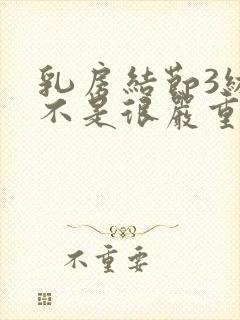 乳房結節3級
不是很嚴重
不重要